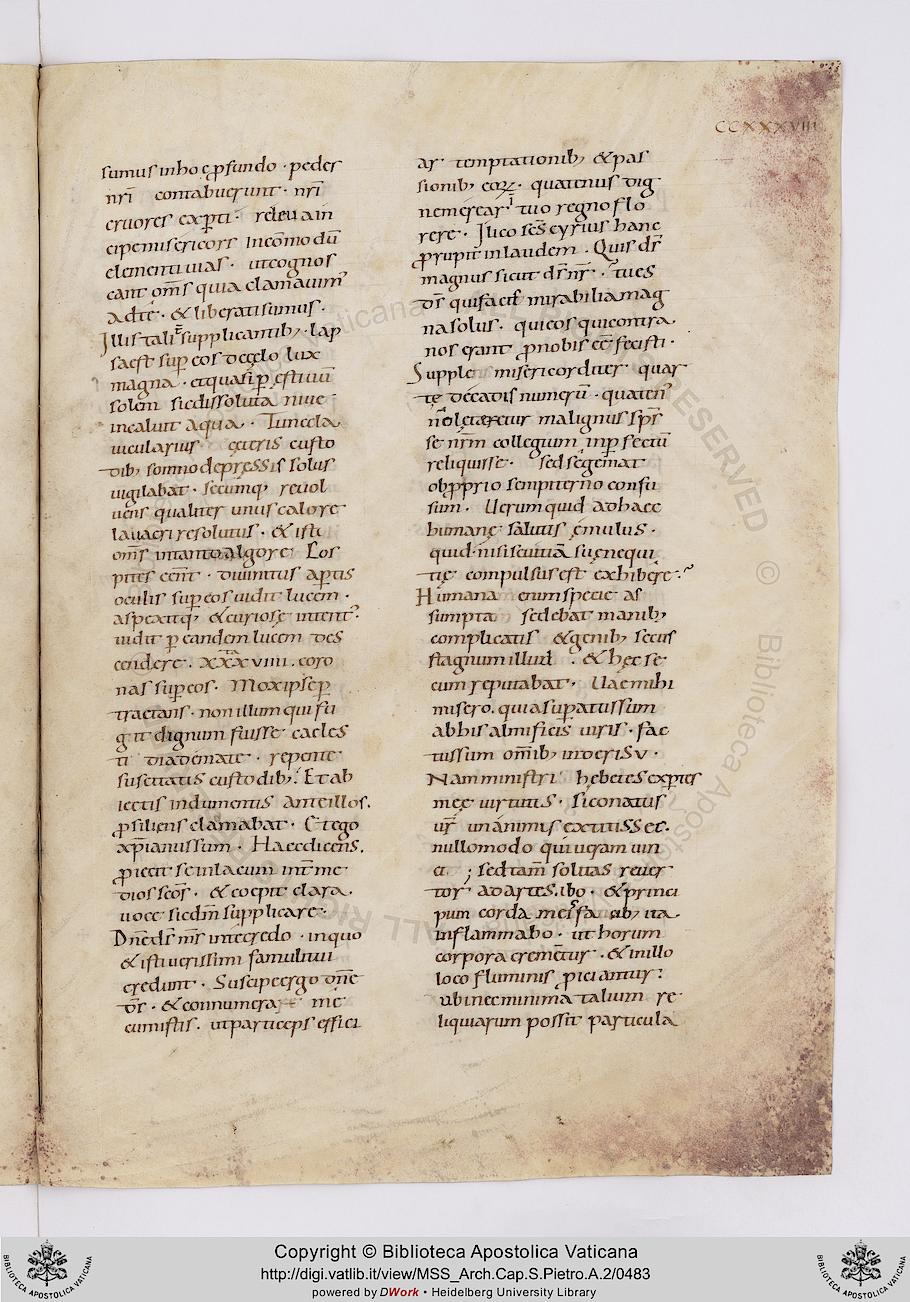 CCXXXVIII
sumus inhoc ꝓfundo · pedes
nr̄i contabuerunt · nr̄i
cruores exꝑti · releuain
cipe misericors Incōmodū
elementi uias · utcognos
cant om̄s quia clamauim᾽
adte · & liberatisumus ·
Illis talit̄ supplicantib; · lap
saest suꝑ eos decęlo lux
magna · etquasi ꝑ ęstiuū
solem sicdissoluta niue
incaluit aqua · Tunccla
uicularius cęteris custo
dib; somno depressis solus
uigilabat · secumq; reuol
uens qualiter unus calore
lauacri resolutus · & isti
om̄s intantoalgore Sos
pites eēnt · diuinitus aꝑtis
oculis suꝑeos uidit lucem ·
aspexitq; &curiose intent᾽
uidit ꝑ eandem lucem des
cendere · XXXVIIII · coro
nas suꝑeos · Moxipse ꝑ
tractans · non illum qui fu
git dignum fuisse caeles
ti diademate · repente
suscitatis custodib; · Et ab
iectis indumentis anteillos ·
ꝓsiliens clamabat · Etego
xp̄ianussum · Haecdicens ·
ꝓiecit se inlacum int̄ me
dios sc̄os · & coepit clara
uoce sicdn̄m supplicare ·
Dn̄e ds̄ nr̄ inte credo · inquo
&istiuerissimi famulitui
credunt · Suscipe ergo dn̄e
& connumera me
cumistis · utparticeps effici
ar temptationib; &pas
sionib; eoꝝ · quatenus dig
nemerear tuo regno flo
rere · Ilico sc̄s cyrius hanc
ꝓrupit inlaudem · Quis ds̄
magnus sicut ds̄ nr̄ · Tu es
ds̄ quifacis mirabilia mag
nasolus · quieos quicontra
nos erant ꝓnobis eē fecisti ·
Supple misericorditer quar
te decadis numerū · quaten᾽
malignus sp̄s
se nr̄m collegium inꝑfectū
reliquisse · sed segemat
obꝓprio sempiterno confu
sum · Uerumquid adhaec
humanę salutis ęmulus ·
quid nisi seuitiā suęnequi
tię compulsus est exhibere ?
Humana enim specie as
sumpta sedebat manib;
complicatis &genib; secus
stagnum illud · & hęc se
cum reputabat · Uae mihi
misero · quia suꝑatussum
abhis almificis uiris · fac
tussum om̄ib; inderisu ·
Nam ministri hebetes exꝑtes
meę uirtutis · si conatus
ur̄ unanimis extitisset ·
nullomodo quiuissem uin
ci ; sed tam̄ soluas reuer
tor adartes · ibo · &princi
pum corda meis fauctib; ita
inflammabo · ut horum
corpora cremetur · & inillo
loco fluminis ꝓiciantur ·
ubi nec minima talium re
liquiarum possit particula
Copyright © Biblioteca Apostolica Vaticana
http://digi.vatlib.it/view/MSS_Arch.Cap.S.Pietro.A.2/0483
powered by DWork • Heidelberg University Library